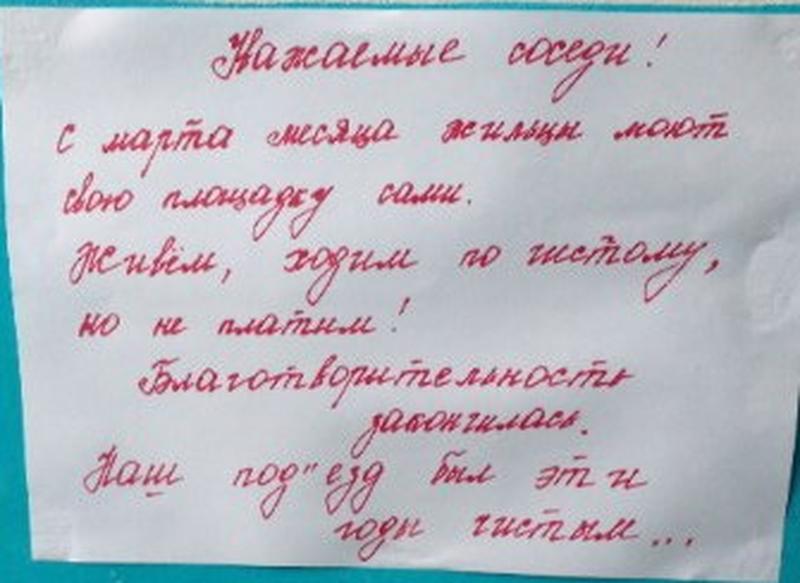 Уважаемые соседи!
С марта месяца жильцы моют
свою площадку сами.
Живём, ходим по чистому,
но не платим!
Благотворительность
закончилась.
Наш под"езд был эти
годы чистым...